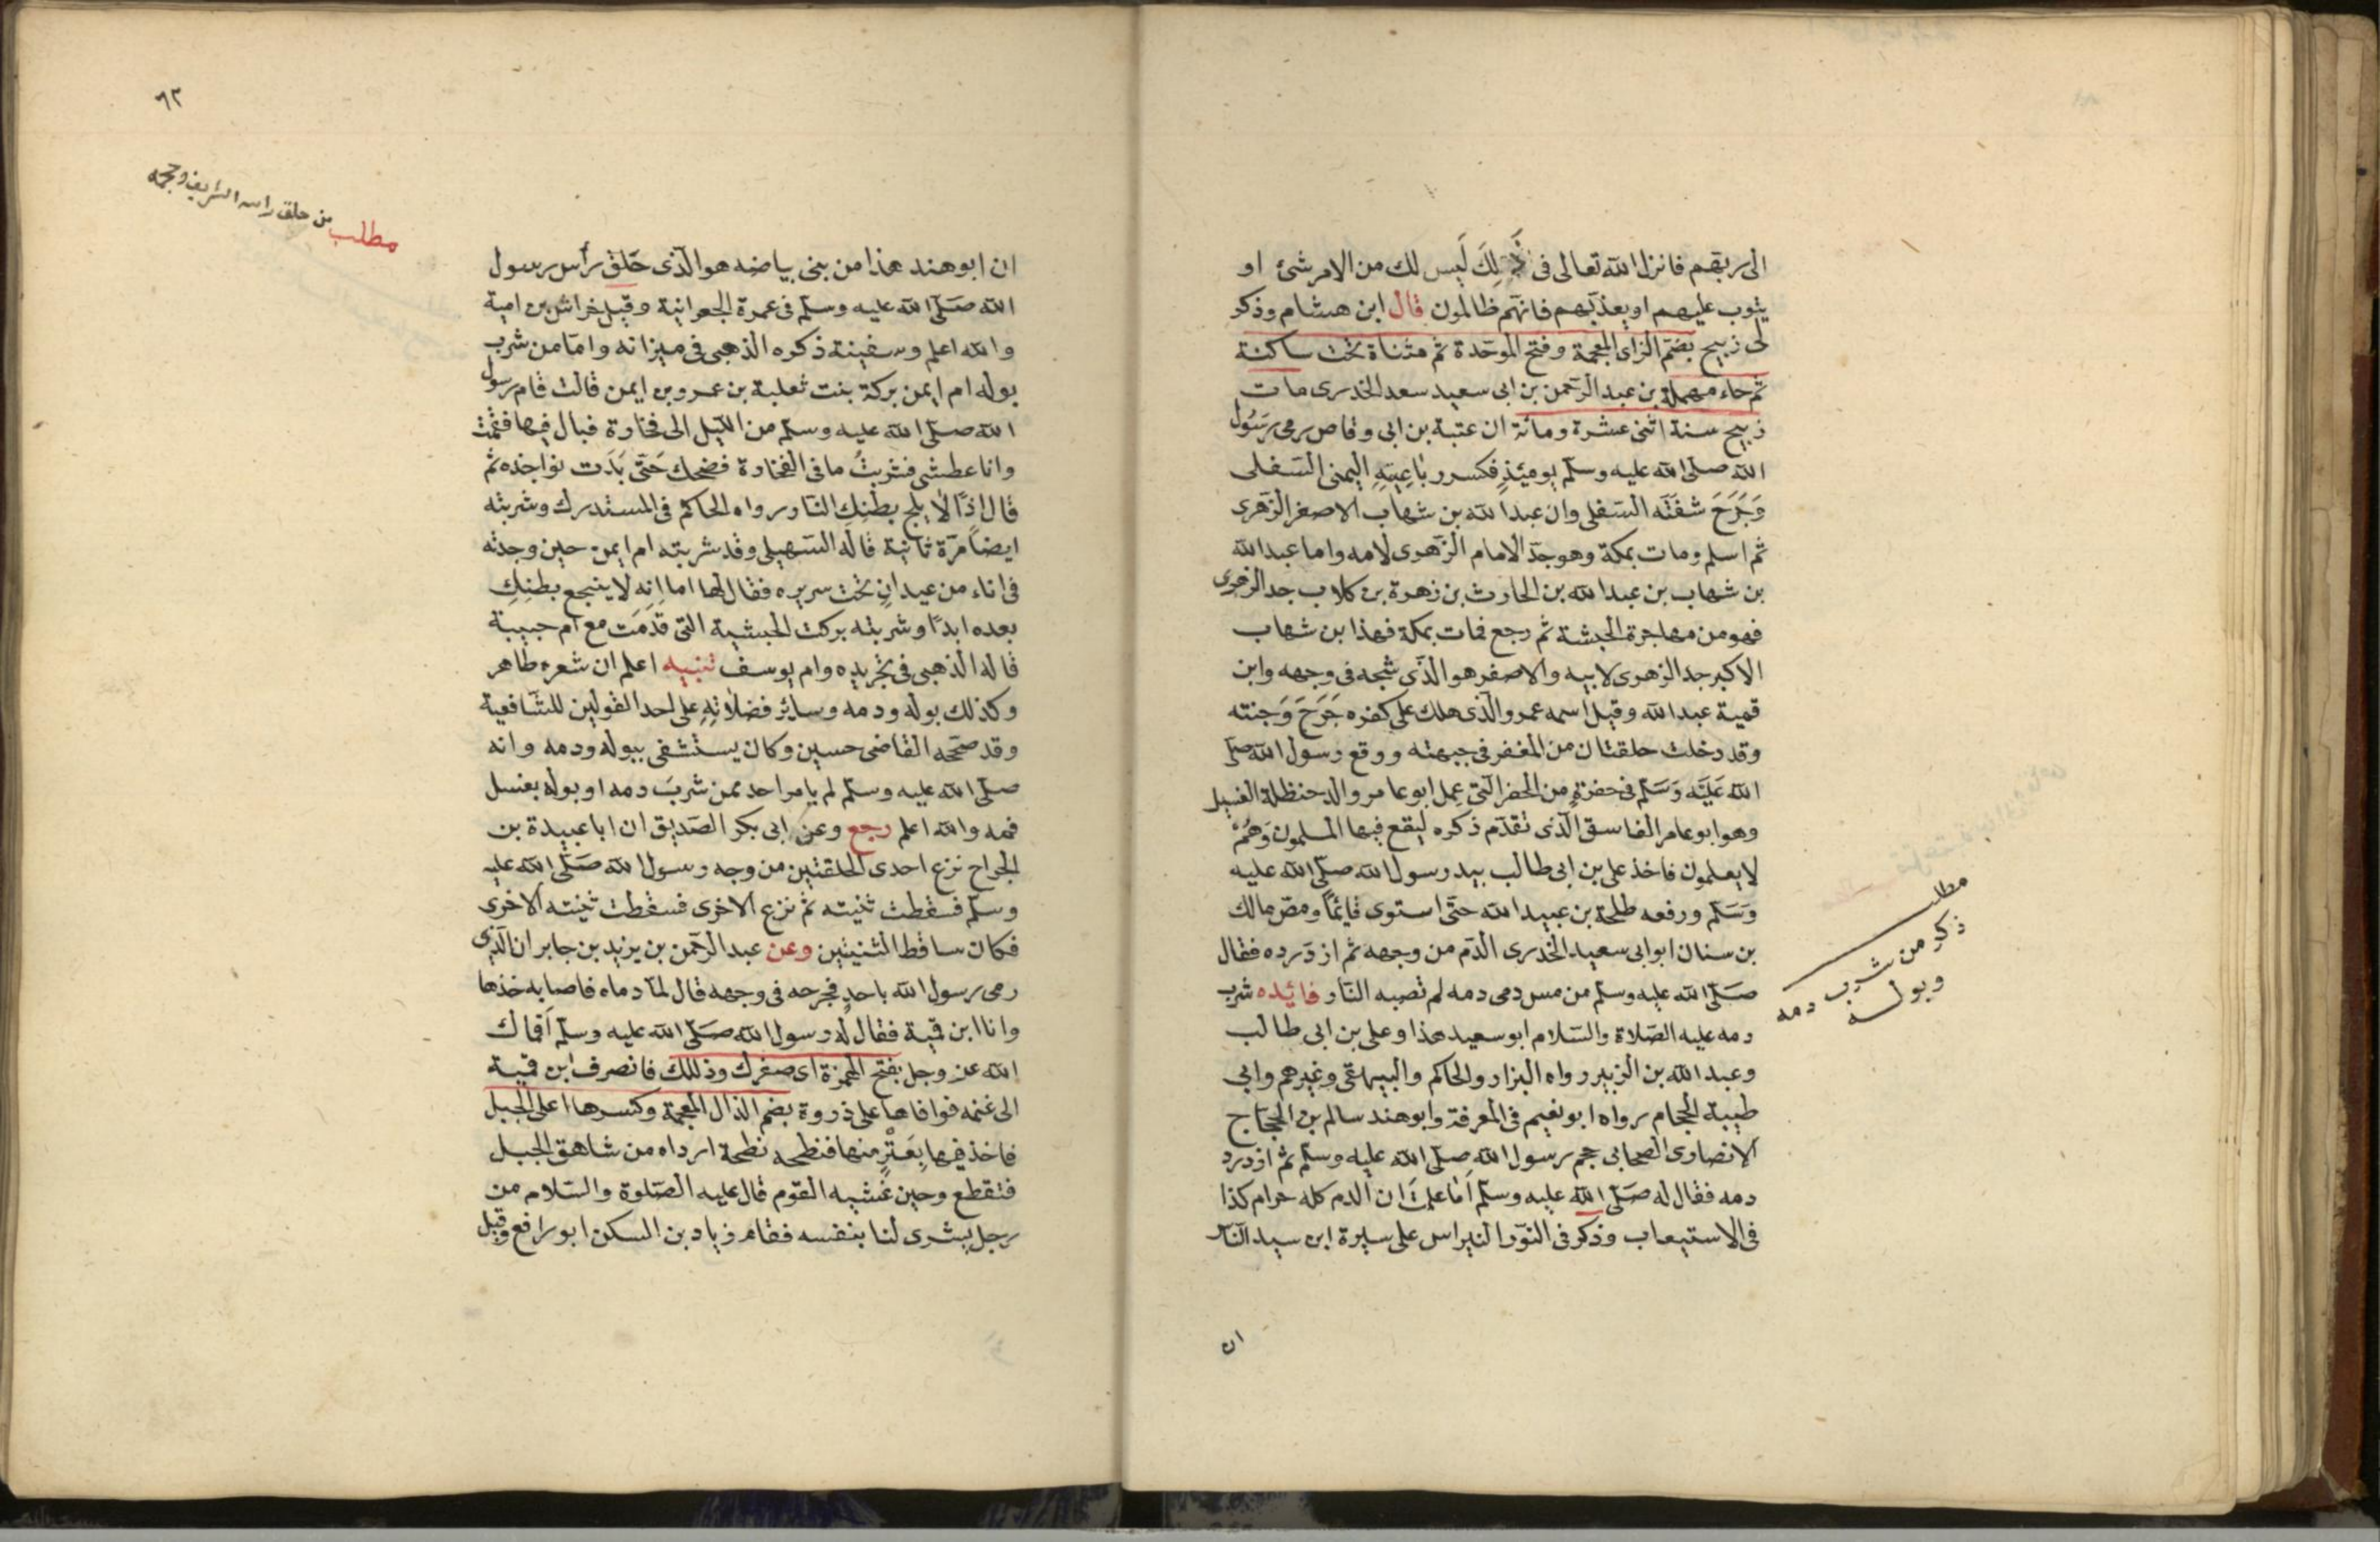 الى ربهم فانزل الله تعالى فى ذَلِكَ لَيس لك من الامر شئ او
يتوب عليهم او يعذبهم فانهم ظالمون قال ابن هشام وذكر
لى زبيح بضم الزاى المعجمة وفتح الموحدة ثم مثناة تحت ساكنة
ثم حاء مهملة بن عبد الرحمن بن ابى سعيد سعد الخدرى مات
زبيح سنة اثنى عشرة ومائة ان عتبة بن ابى وقاص رمى رَسُول
الله صلى الله عليه وسلم يومئذٍ فكسر رباعِيَتِهِ اليمنى السفلى
وَجَرَحَ شفَتَه السفلى وان عبد الله بن شهاب الاصغر الزهرى
ثم اسلم ومات بمكة وهو جد الامام الزهرى لامه واما عبد الله
بن شهاب بن عبد الله بن الحارث بن زهرة بن كلاب جد الزهرى
فهو من مهاجرة الحبشة ثم رجع فمات بمكة فهذا بن شهاب
الاكبر جد الزهرى لابيه والاصغر هو الذى شجه فى وجهه وابن
قمية عبد الله وقيل اسمه عمرو الذى هلك على كفره جَرَحَ وَجنته
وقد دخلت حلقتان من المغفر فى جبهته ووقع رسول الله صلى
الله عَلَيْه وَسَلم فى حفرةٍ من الحفر التى عمل ابو عامر والد حنظلة الغسيل
وهو ابو عامر الفاسق الذى تقدم ذكره ليقع فيها المسلمون وَهُمْ
لا يعلمون فاخذ على بن ابى طالب بيد رسول الله صلى الله عليه
وَسَلم ورفعه طلحة بن عبيد الله حتى استوى قائماً ومصّ مالك
بن سنان ابو ابى سعيد الخدرى الدم من وجهه ثم ازدرده فقال
صَلى الله عليه وسلم من مس دمى دمه لم تصبه النار فائده شرب
دمه عليه الصلاة والسلام ابو سعيد هذا وعلى بن ابى طالب
وعبد الله بن الزبير رواه البزار والحاكم والبيهقى وغيرهم وابى
طيبة الحجام رواه ابو نعيم فى المعرفة وابو هند سالم بن الحجاج
الانصارى الصحابى حجم رسول الله صلى الله عليه وسلم ثم ازدرد
دمه فقال له صَلى الله عليه وسلم اَمَا علمتَ ان الدم كله حرام كذا
فى الاستيعاب وذكر فى النور النبراس على سيرة ابن سيد الناس
ان
مطلب
ذكر من شرب دمه
وبوله
٦٢
مطلب من حلق راسه الشريف وحجمه
ان ابو هند هذا من بنى بياضه هو الذى حَلق رأس رسول
الله صَلى الله عليه وسلم فى عمرة الجعرانية وقيل خراش بن امية
والله اعلم وسفينة ذكره الذهبى فى ميزانه واما من شرب
بوله ام ايمن بركة بنت ثعلبة بن عمرو بن ايمن قالت قام رسول
الله صلى الله عليه وسلم من الليل الى فخارة فبال فيها فقمت
وانا عطشى فشربتُ ما فى الفخارة فضحك حَتى بَدَت نواجذه ثم
قال اذًا لا يلج بطنِكِ النار رواه الحاكم فى المستدرك وشربته
ايضاً مَرّة ثانية قاله السهيلى وقد شربته ام ايمن حين وجدته
فى اناء من عيدانٍ تحت سريره فقال لها اما انه لا ينجع بطنِكِ
بعده ابدًا وشربته بركت الحبشية التى قدمَت مع ام حبيبة
قاله الذهبى فى تجريده وام يوسف تنبيه اعلم ان شعره طاهر
وكذلك بوله ودمه وسائر فضلاتِهِ على احد القولين للشافعية
وقد صححه القاضى حسين وكان يستشفى ببوله ودمه وانه
صلى الله عليه وسلم لم يامر احد ممن شربَ دمه او بوله بغسل
فمه والله اعلم رجع وعن ابى بكر الصديق ان ابا عبيدة بن
الجراح نزع احدى الحلقتين من وجه رسول الله صَلى الله عليه
وسلم فسقطت ثنيته ثم نزع الاخرى فسقطت ثنيته الاخرى
فكان ساقط الثنيتين وعن عبد الرحمن بن يزيد بن جابر ان الذى
رمى رسول الله باحدٍ فجرحه فى وجهه قال لما رماه فاصابه خذها
وانا ابن قمية فقال له رسول الله صَلى الله عليه وسلم اَقماك
الله عز وجل بفتح الهمزة اى صغرك وذللك فانصرف بن قمية
الى غنمه فوافاها على ذروة بضم الذال المعجمة وكسرها اعلى الجبل
فاخذ فيها بِعَنْزٍ منها فنطحه نطحة ارداه من شاهق الجبل
فتقطع وحين غشيه القوم قال عليه الصلوة والسلام من
رجل يشرى لنا بنفسه فقام زياد بن السكن ابو رافع وقيل